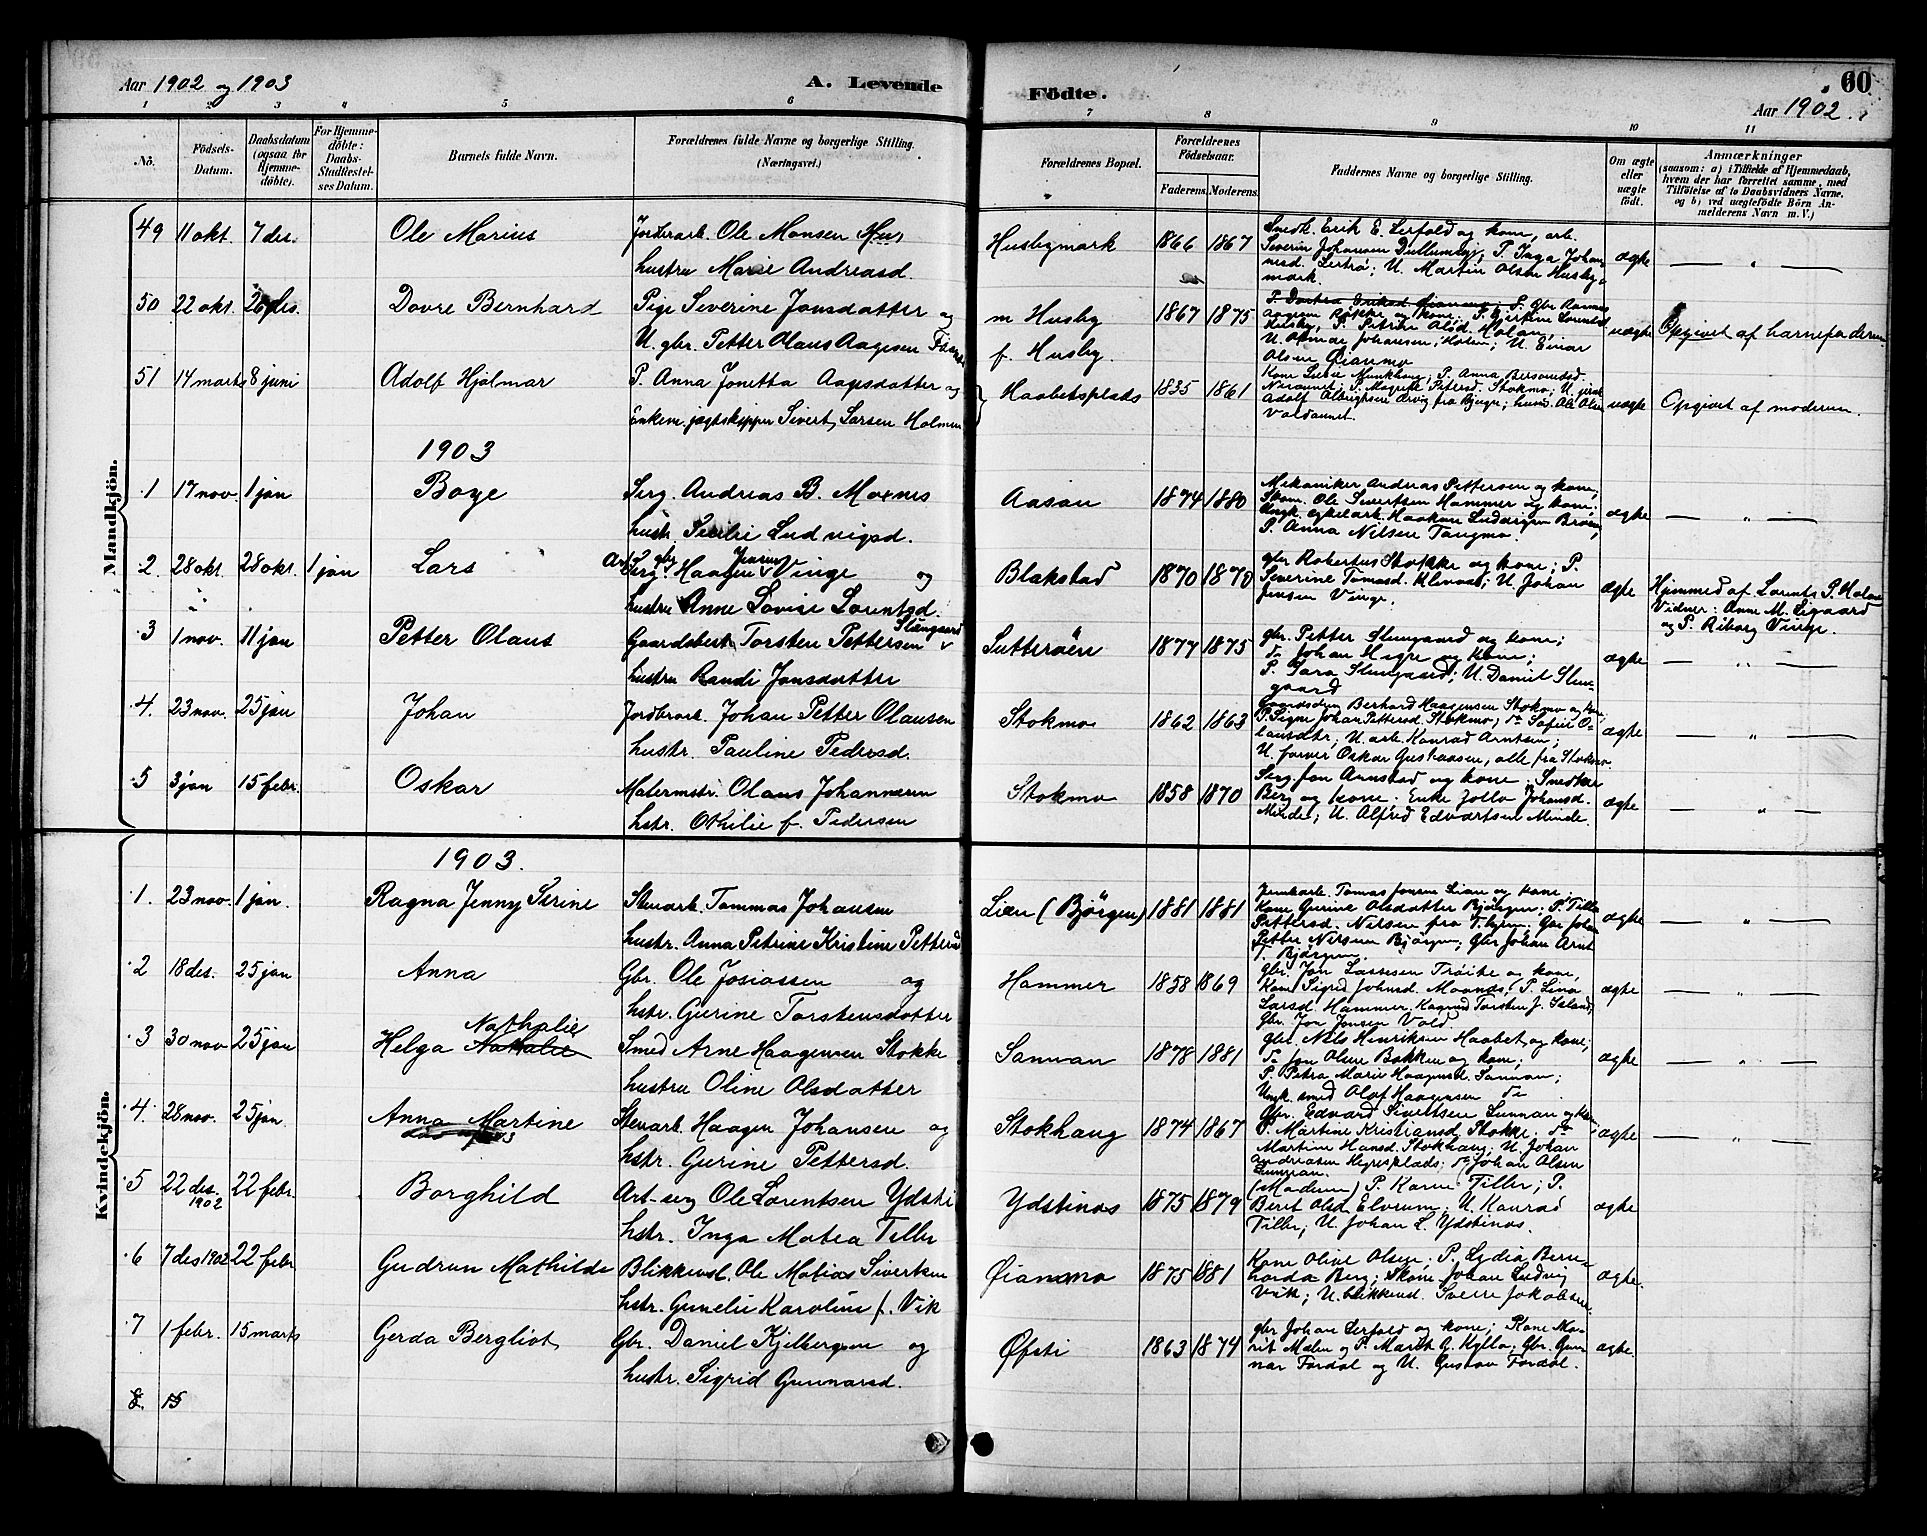 Aar 1902 og 1903
A. Levende
Födte.
60
Aar 1902.
1 2 3 4 5 6 7 8 9 10 11
No.
Födsels-
Datum.
Daabsdatum
(ogsaa for
Hjemme-
döbte).
For Hjemme-
döbte:
Daabs-
Stadfæstel-
ses Datum.
Barnets fulde Navn.
Forældrenes fulde Navne og borgerlige Stilling.
(Næringsvei.)
Forældrenes Bopæl.
Forældrenes
Födselsaar.
Faderens. Moderens.
Faddernes Navne og borgerlige Stilling.
Om ægte
eller
uægte
født.
Anmærkninger
(saasom: a) i Tilfælde af Hjemmedaab,
hvem der har forrettet samme, med
Tilföielse af to Daabsvidners Navne,
og b) ved uægtefödte Börn An-
melderens Navn m. V.)
Mandkjön.
49 11 okt. 7 des. Ole Marius Jordarb. Ole Monsen Hus
hustru Marie Andreasd.
Husbymark 1866 1867
Snedk. Erik E. Lerfald og kone, arb.
Severin Johansen Dullumby; P. Inga Johan
nesd. Lertrø; U. Martin Olsen Husby-
mark.
ægte — " —
50 22 okt. 26 des. Dovre Bernhard Pige Severine Jonsdatter og
U. gbr. Petter Olaus Aagesen
m Husby
f. Husby. 1867 1875
Husby, P. Petrine Olsd. Holan,
U. Johansen, ; U. Einar
Olsen Øianmo
uægte Opgivet af barnefaderen
51 14 marts 8 juni Adolf Hjalmar P. Anna Jonetta Aagesdatter og
Enkem. jagtskipper Sivert Larsen Holmen
Haabetsplads 1835 1861
Kone Munkhaug; P. Anna
P. Magrete Petersd. Stokmo; U.
Adolf fra Bjugn; husm. Ole Olsen
Valdaunet.
uægte Opgivet af moderen.
1903
1 17 nov. 1 jan Boye Serg. Andreas B. Moxnes
hustr. Lud vigsd.
Aasan 1874 1880
Mekaniker Andreas Pettersen og kone;
Skom. Ole Sivertsen Hammer og kone;
Ungk. cykelarb. Haakon Ludvigsen
P. Anna Nilsen Tangmo
ægte — " —
2. 28 okt. 28 okt. 1 jan Lars Serg. Haagen Jensen Vinge og
hustru Anne Lovise Lorentsd.
Blakstad 1870 1870
gbr Robertus Stokke og kone; P.
Severine Tomasd. ; U. Johan
Jensen Vinge.
ægte Hjemmed af Lorents P. Holm
Vidner: Anne M. Ligaard
og P. Riborg Vinge.
3 1 nov. 11 jan Petter Olaus Gaardsbest. Torsten Pettersen Slungaard
hustru Randi Jonsdatter
Sutterøen 1877 1875
gbr. Petter Slungaard og kone;
do Johan Hegre og kone;
P. Sara Slungaard; U. Daniel Slun-
gaard
ægte — " —
4. 23 nov. 25 jan Johan Jordbrarb. Johan Petter Olausen
hustr. Pauline Pedersd.
Stokmo 1862 1863
Gaardsdyr. Berhard Haagensen Stokmo og kone,
P. Signe Johan Pettersd. Stokmo; do Sofie O-
lausdtr; U. arb. Konrad Arntsen;
U. farver Oskar Gustavsen, alle fra Stokmo
ægte — " —
5 3 jan 15 febr. Oskar Matermstr. Olaus Johannesen
hstr. Othilie f. Pedersen
Stokmo 1858 1870
Serg. Jon Arnstad og kone. Snedker
Berg og kone. Enke Johansd.
Minde; U. Alfred Edvartsen Minde.
ægte — " —
Kvindekjön.
1903.
1. 23 nov. 1 jan. Ragna Jenny Serine Stenarb. Tommas Johansen
hustr. Anna Petrine Kristine Pettersd
Lien (Björgen) 1881 1881
Jernbarb. Tomas Jensen Lian og kone.
Kone Gurine Olsdatter Björgen; P. Tilla
Pettersd. Nilsen fra T. hjem; Gbr. Johan
Petter Nilsen Björgen; gbr Johan Arnt
P. Björgen.
ægte — " —
2 18 des. 25 jan Anna Gbr. Ole Josiassen og
hstr. Gurine Torstensdatter
Hammer 1858 1869
gbr. Jon Lassesen Tröite og kone,
Kone Sigrid Johnsd. Moands; P. Lina
Larsd. Hammer, Torsten J.
Gbr. Jon Jensen Vold.
ægte — " —
3 30 nov 25 jan Helga Nathalie Smed Arne Haagensen Stokke
hustru Oline Olsdatter
Sannan 1878 1881
gbr. Nils Henriksen Haabet og kone;
do Jon Olsen Bakken og kone;
P. Petra Marie Haagensd. Sannan;
Ungk. smed Olaf Haagensen do
ægte — " —
4. 28 nov. 25 jan. Anna Martine
Stenarb Haagen Johansen og
hstr. Gurine Pettersd.
Stokhaug 1874 1867
Gbr. Edvard Sivertsen Lunnan og kone;
P. Martine Kristiansd. Stokke. do
Martine Hansd. Stokhaug; U. Johan
Andreasen Hegresplads; do Johan Olsen
Lunnan.
ægte — " —
5 22 des.
1902 22 febr. Borghild Art-serg Ole Lorentsen Ydsti
hstr. Inga Matea Tiller
Ydstines 1875 1879
(Modren) P. Karen Tiller; P.
Beret Olsd. Elverum; U. Konrad
Tiller; U. Johan L. Ydstines.
ægte
6 7 des 1902 22 febr Gudrun Mathilde Blikkensl. Ole Matias Sivertsen
hstr. Gunelie Karoline f. Vik
Øianmo 1875 1881
Kone Olive Olsen; P. Lydia Bern-
harda Berg; Skom. Johan Ludvig
Vik; U. blikkensl. Sverre Jakobsen.
ægte.
7 1 febr. 15 marts Gerda Bergliot Gbr. Daniel Kjelbergsen og
hustr. Sigrid Gunnarsd.
Øfsti 1863 1874
gbr Johan Lerfald og kone; Kone Ma-
rit Malen og P. Marith G. Kylla; Gbr. Gun-
nar Fordal og U. Gustav Fordal.
ægte.
8. 15